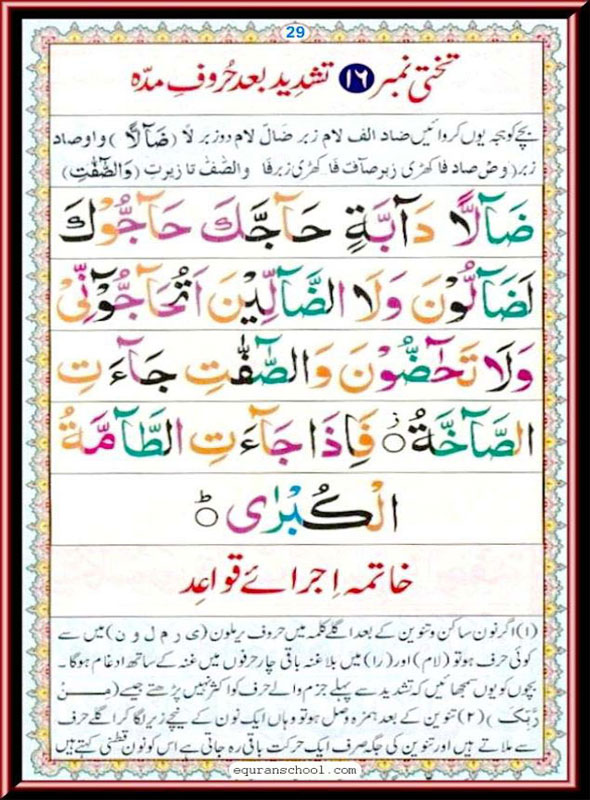 29
تختی نمبر ۱۶ تشدید بعد حُروفِ مدّہ
بچے کو ہجہ یوں کروائیں ضاد الف لام زبر ضَالّ لام دو زبر لاً (ضَآلًّا) واو صاد
زبر (وَصْ صاد فا کھڑی زبر صآفّ فا کھڑی زبر فٰا وَالصّٰٓفّٰ تا زیر تِ (وَالصّٰٓفّٰتِ)
ضَآلًّا دَآبَّةٍ حَآجَّكَ حَآجُّوْكَ
لَضَآلُّوْنَ وَلَا الضَّآلِّيْنَ اَتُحَآجُّوْٓنِّيْ
وَلَا تَحٰٓضُّوْنَ وَالصّٰٓفّٰتِ جَآءَتِ
الصَّآخَّةُ ۚ فَاِذَا جَآءَتِ الطَّآمَّةُ
الْكُبْرٰى ؕ
خاتمہ اجرائے قواعد
(۱) اگر نون ساکن و تنوین کے بعد اگلے کلمہ میں حروف یرملون (ی ر م ل و ن) میں سے
کوئی حرف ہو تو (لام) اور (را) میں بلا غنہ باقی چار حرفوں میں غنہ کے ساتھ ادغام ہوگا۔
بچوں کو یوں سمجھائیں کہ تشدید سے پہلے جزم والے حرف کو اکثر نہیں پڑھتے جیسے (مِنْ
رَّبِّكَ) (۲) تنوین کے بعد ہمزہ وصل ہو تو وہاں ایک نون کے نیچے زیر لگا کر اگلے حرف
سے ملاتے ہیں اور تنوین کی جگہ صرف ایک حرکت باقی رہ جاتی ہے اس کو نون قطنی کہتے ہیں
equranschool.com